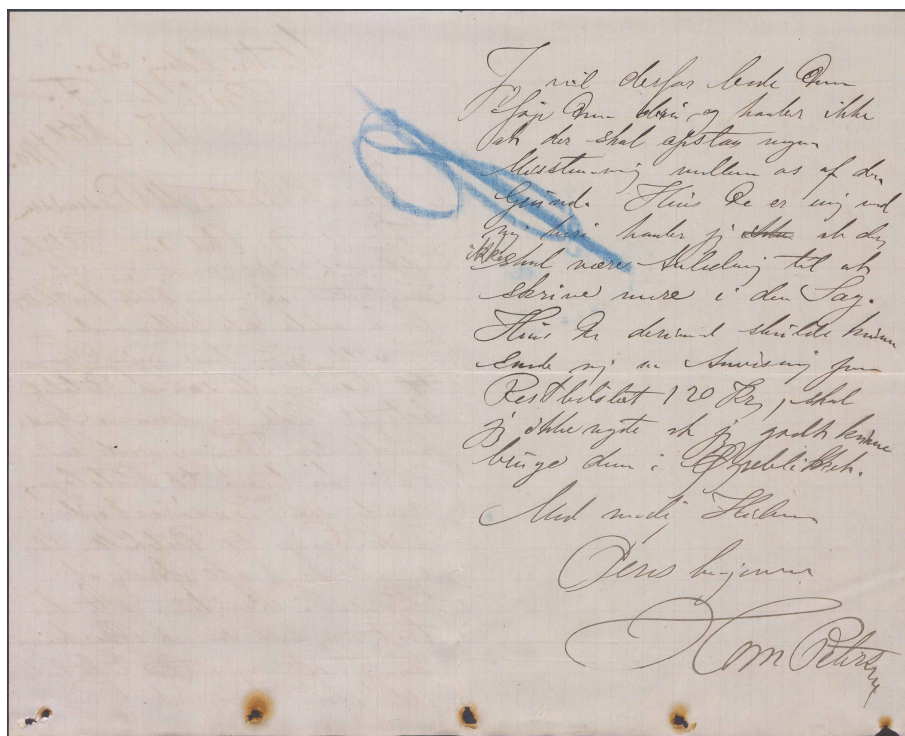 Jeg vil derfor bede Dem
føje Dem heri og haaber ikke
at der skal opstaa nogen
Misstemning mellem os af den
Grund. Hvis De er enig med
mig heri haaber jeg ikke at der
ikke skal være Anledning til at
skrive mere i den Sag.
Hvis De derimod skulde kunne
sende mig en Anvisning paa
Restbeløbet 120 Kr, skal
jeg ikke nægte at jeg godt kunne
bruge dem i Øjeblikket.
Med venlig Hilsen
Deres hengivne
Petersen